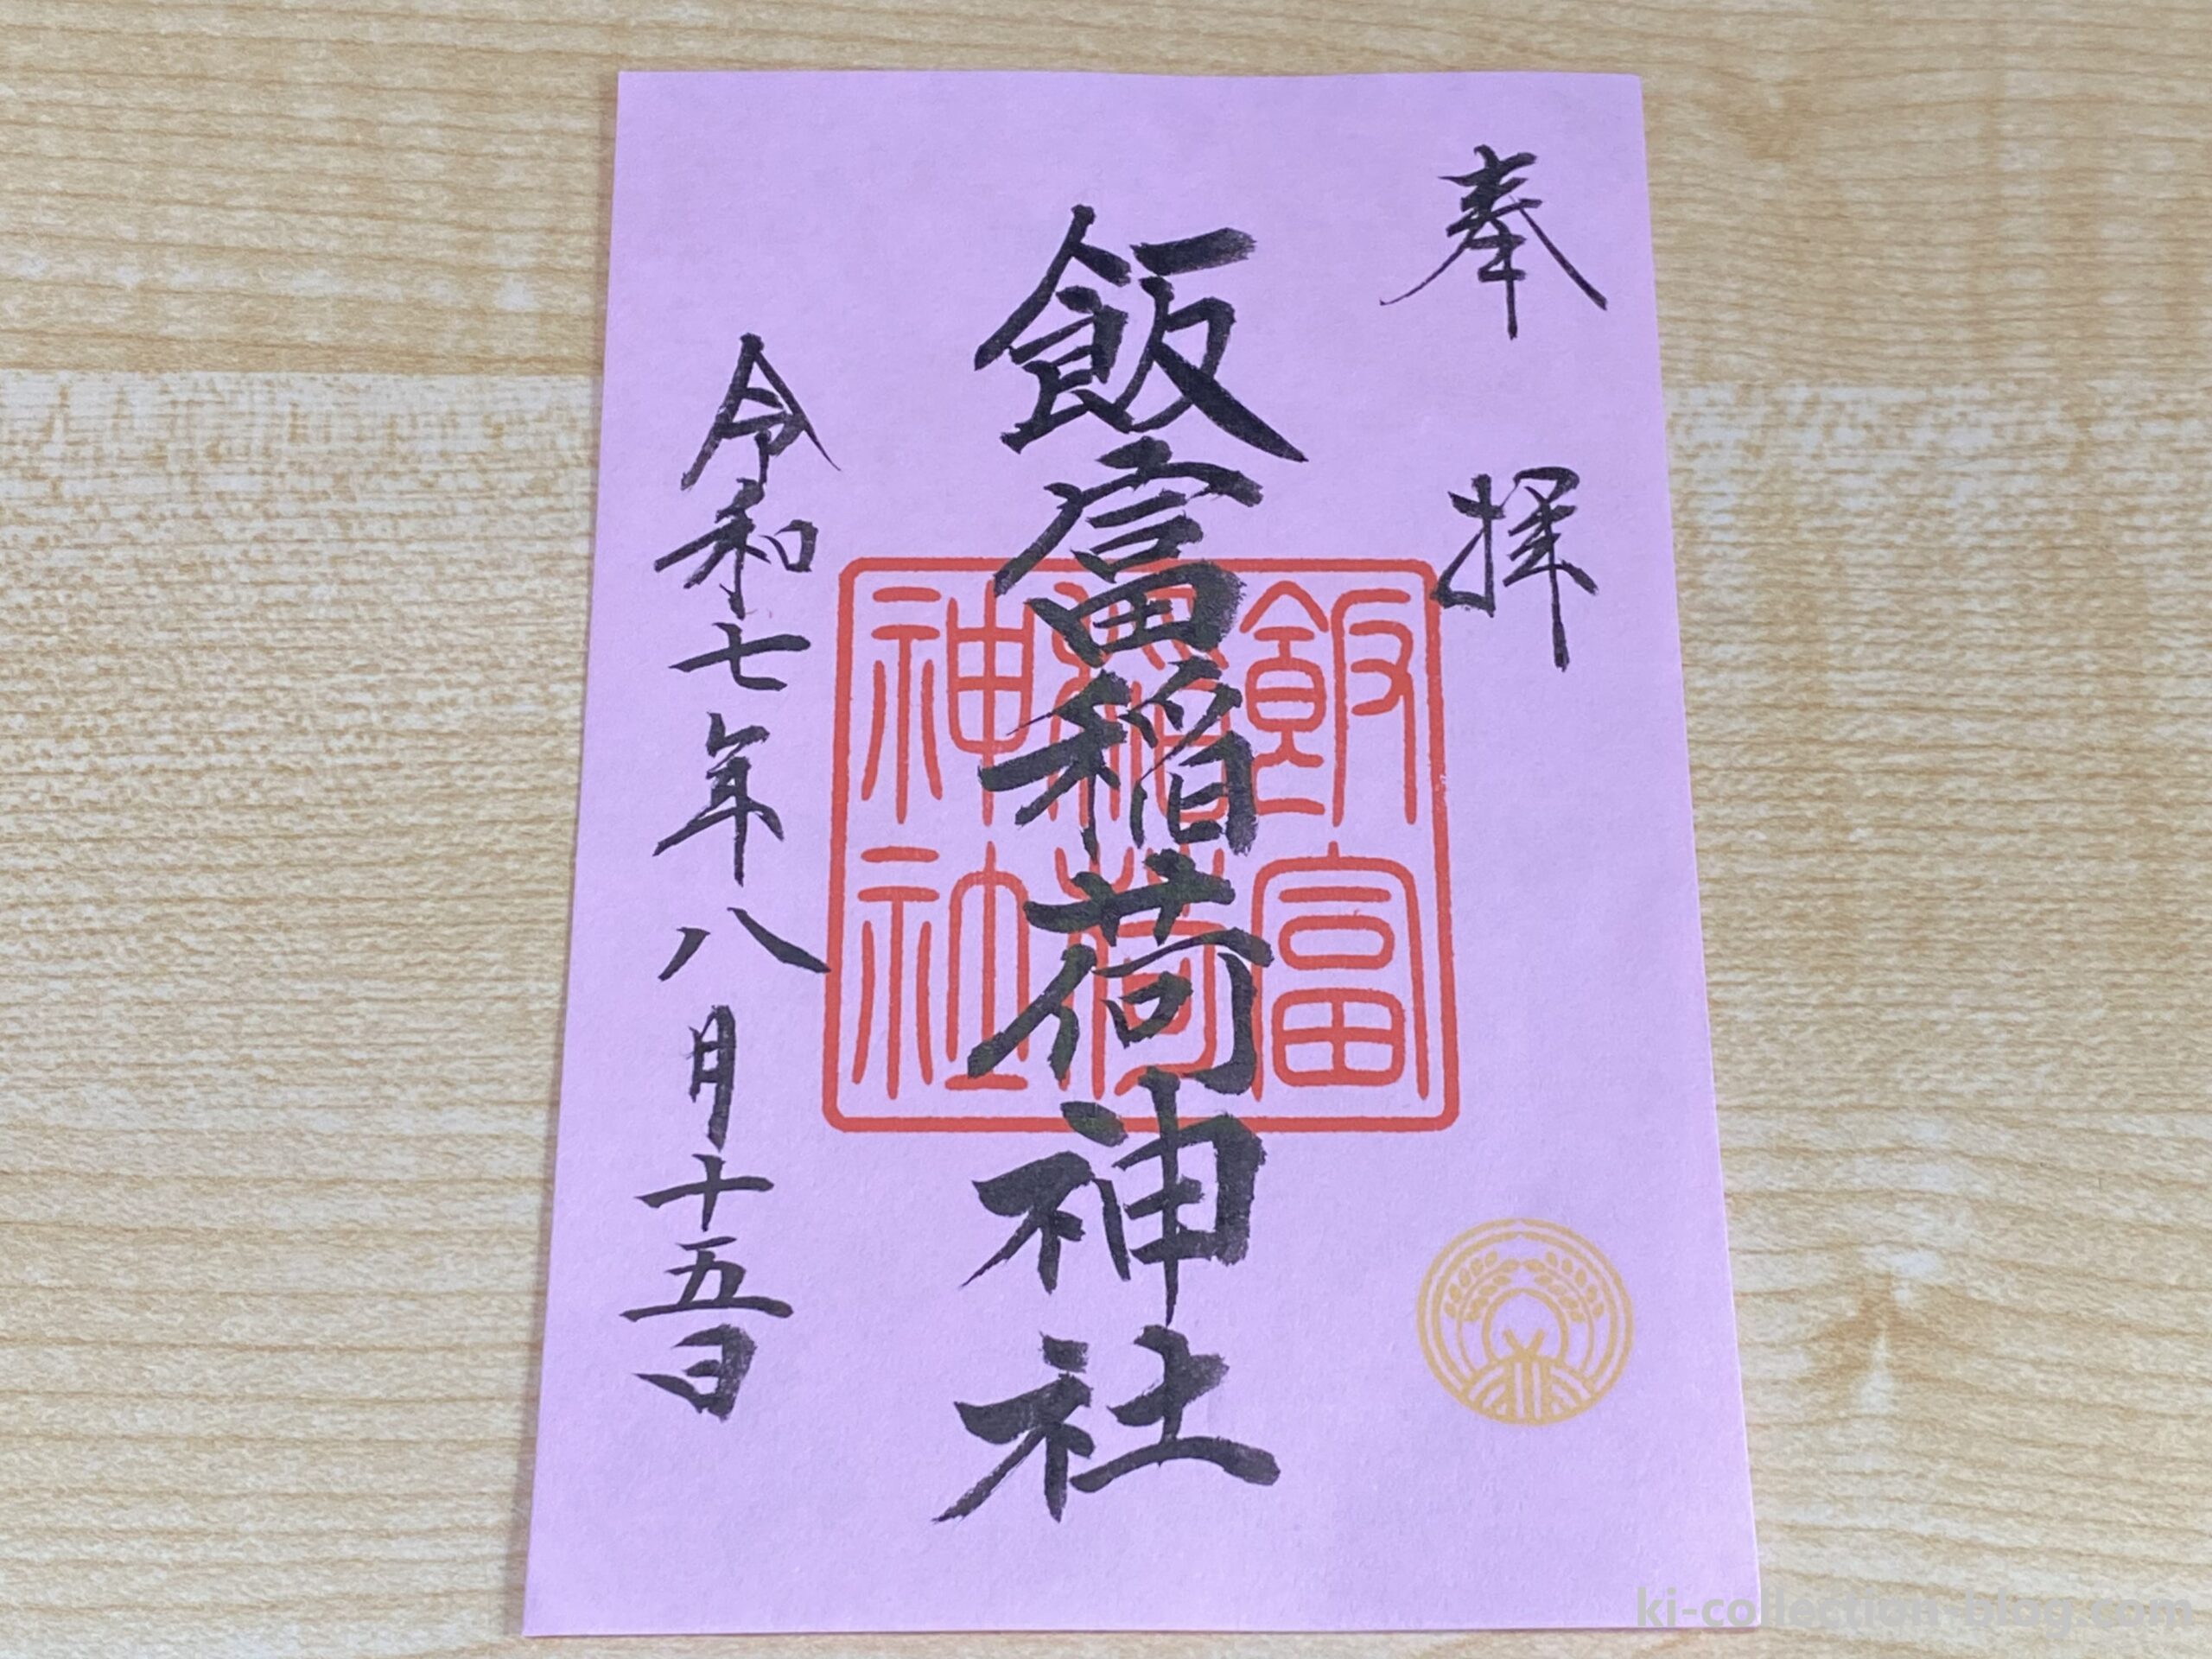 奉拝
飯富稲荷神社
飯富
稲荷
神社
令和七年八月十五日
ki-collection-blog.com